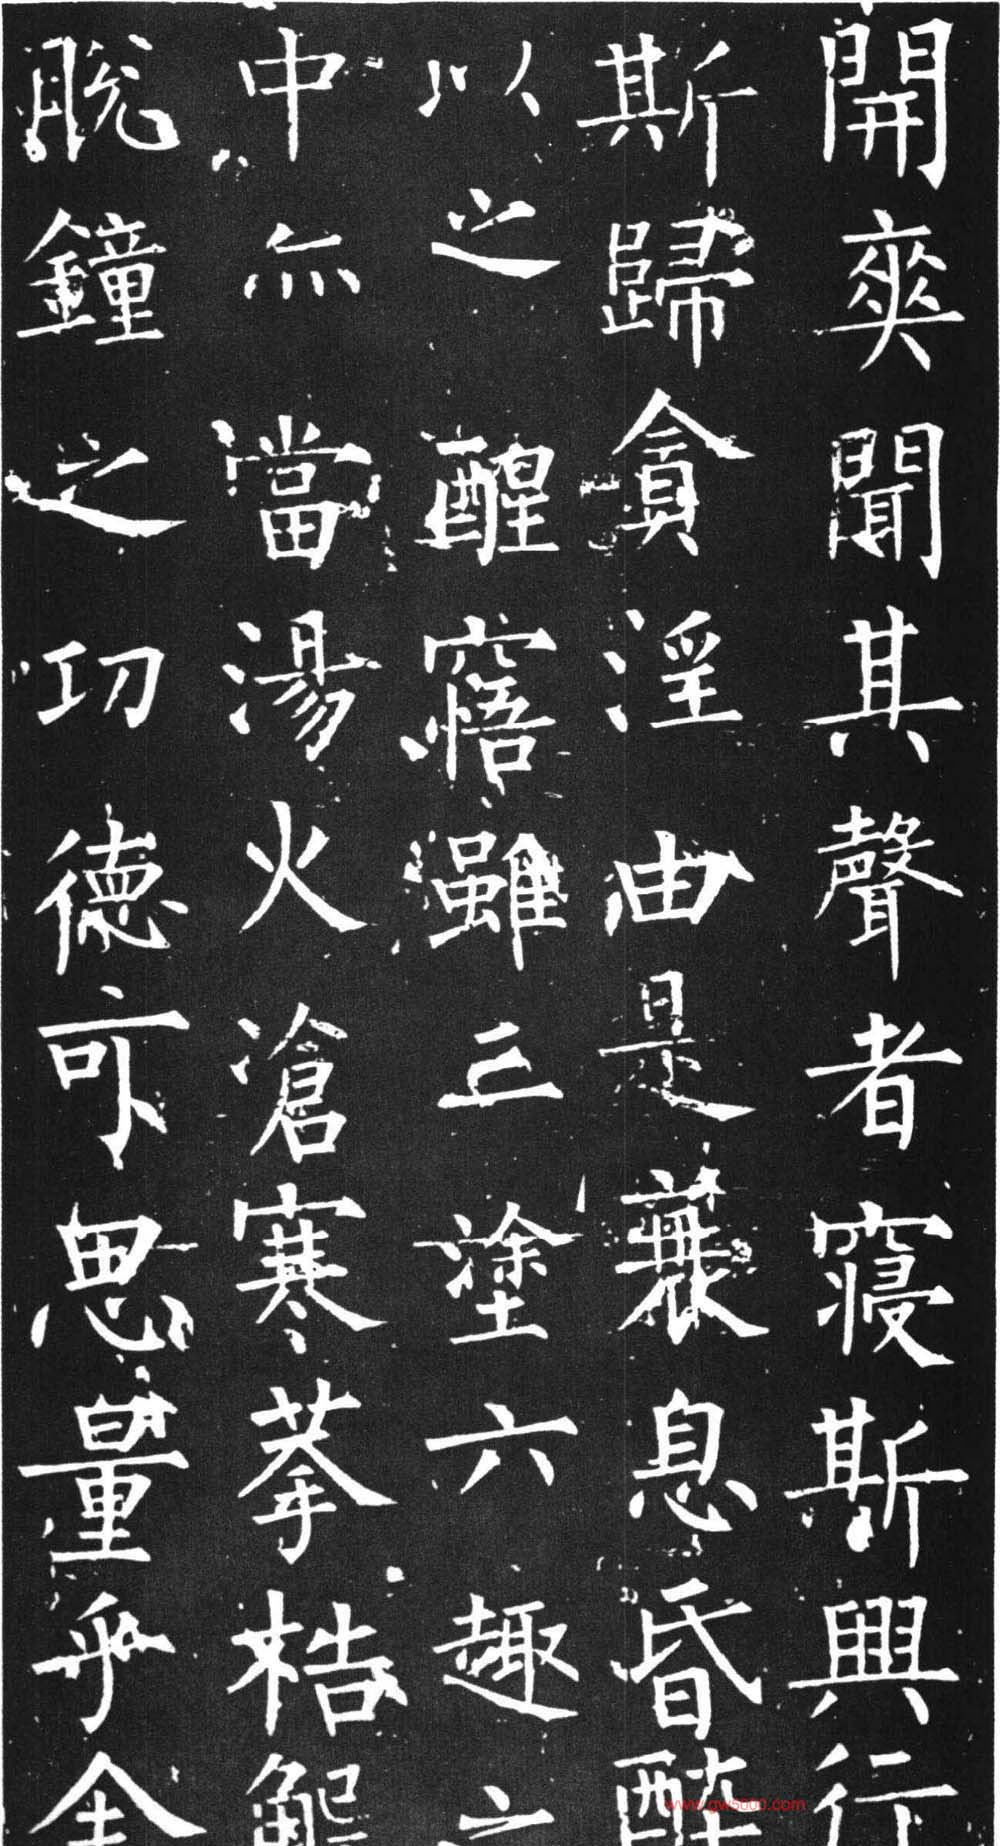 開爽聞其聲者寢斯興行
斯歸貪淫由是蓑息昏醉
以之醒寤雖三塗六趣之
中亦當湯火滄寒拲梏解
脫鐘之功德可思量乎全
www.gw5000.com